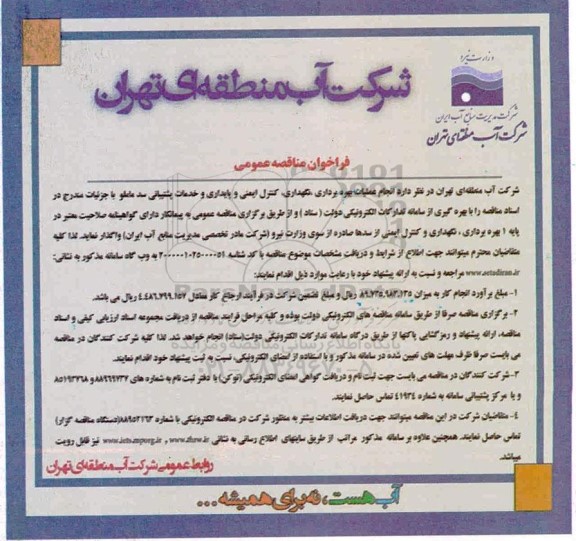 شرکت آب منطقه‌ای تهران
وزارت نیرو
شرکت مدیریت منابع آب ایران
شرکت آب منطقه‌ای تهران
فراخوان مناقصه عمومی
شرکت آب منطقه‌ای تهران در نظر دارد انجام عملیات بهره برداری ،نگهداری، کنترل ایمنی و پایداری و خدمات پشتیبانی سد ماملو با جزئیات مندرج در
اسناد مناقصه را با بهره گیری از سامانه تدارکات الکترونیکی دولت ( ستاد ) و از طریق برگزاری مناقصه عمومی به پیمانکار دارای گواهینامه صلاحیت معتبر در
پایه ۱ بهره برداری ، نگهداری و کنترل ایمنی از سدها صادره از سوی وزارت نیرو (شرکت مادر تخصصی مدیریت منابع آب ایران) واگذار نماید. لذا کلیه
متقاضیان محترم میتوانند جهت اطلاع از شرایط و دریافت مشخصات موضوع مناقصه با کد شناسه به وب گاه سامانه مذکور به نشانی:
www.setadiran.ir مراجعه و نسبت به ارائه پیشنهاد خود با رعایت موارد ذیل اقدام نمایند:
۱- مبلغ برآورد انجام کار به میزان ۸۹،۷۳۵،۹۸۳،۱۳۵ ریال و مبلغ تضمین شرکت در فرآیند ارجاع کار معادل ۴،۴۸۶،۷۹۹،۱۵۷ ریال می باشد.
۲- برگزاری مناقصه صرفا از طریق سامانه مناقصه های الکترونیکی دولت بوده و کلیه مراحل فرایند مناقصه از دریافت مجموعه اسناد ارزیابی کیفی و اسناد
مناقصه، ارائه پیشنهاد و رمزگشایی پاکتها از طریق درگاه سامانه تدارکات الکترونیکی دولت(ستاد) انجام خواهد شد. لذا کلیه شرکت کنندگان در مناقصه
می بایست صرفا ظرف مهلت های تعیین شده در سامانه مذکور و با استفاده از امضای الکترونیکی، نسبت به ثبت پیشنهاد خود اقدام نمایند.
۳-شرکت کنندگان در مناقصه می بایست جهت ثبت نام و دریافت گواهی امضای الکترونیکی (توکن) با دفتر ثبت نام به شماره های ۸۸۹۶۹۷۳۷و ۸۵۱۹۳۷۶۸
و یا مرکز پشتیبانی سامانه به شماره ۴۱۹۳۴ تماس حاصل نمایند.
۴- متقاضیان شرکت در این مناقصه میتوانند جهت دریافت اطلاعات بیشتر به منظور شرکت در مناقصه الکترونیکی با شماره ۸۸۹۵۳۱۶۳(دستگاه مناقصه گزار)
تماس حاصل نمایند. همچنین علاوه بر سامانه مذکور مراتب از طریق سایتهای اطلاع رسانی به نشانی www.iets.mporg.ir , www.thrw.ir نیز قابل رویت
میباشد.
روابط عمومی شرکت آب منطقه‌ای تهران
آب هست، نه برای همیشه ...
ParsNamadData
پایگاه اطلاع رسانی مناقصه و مزایده
۰۲۱-۸۸۳۴۹۶۷۰-۵